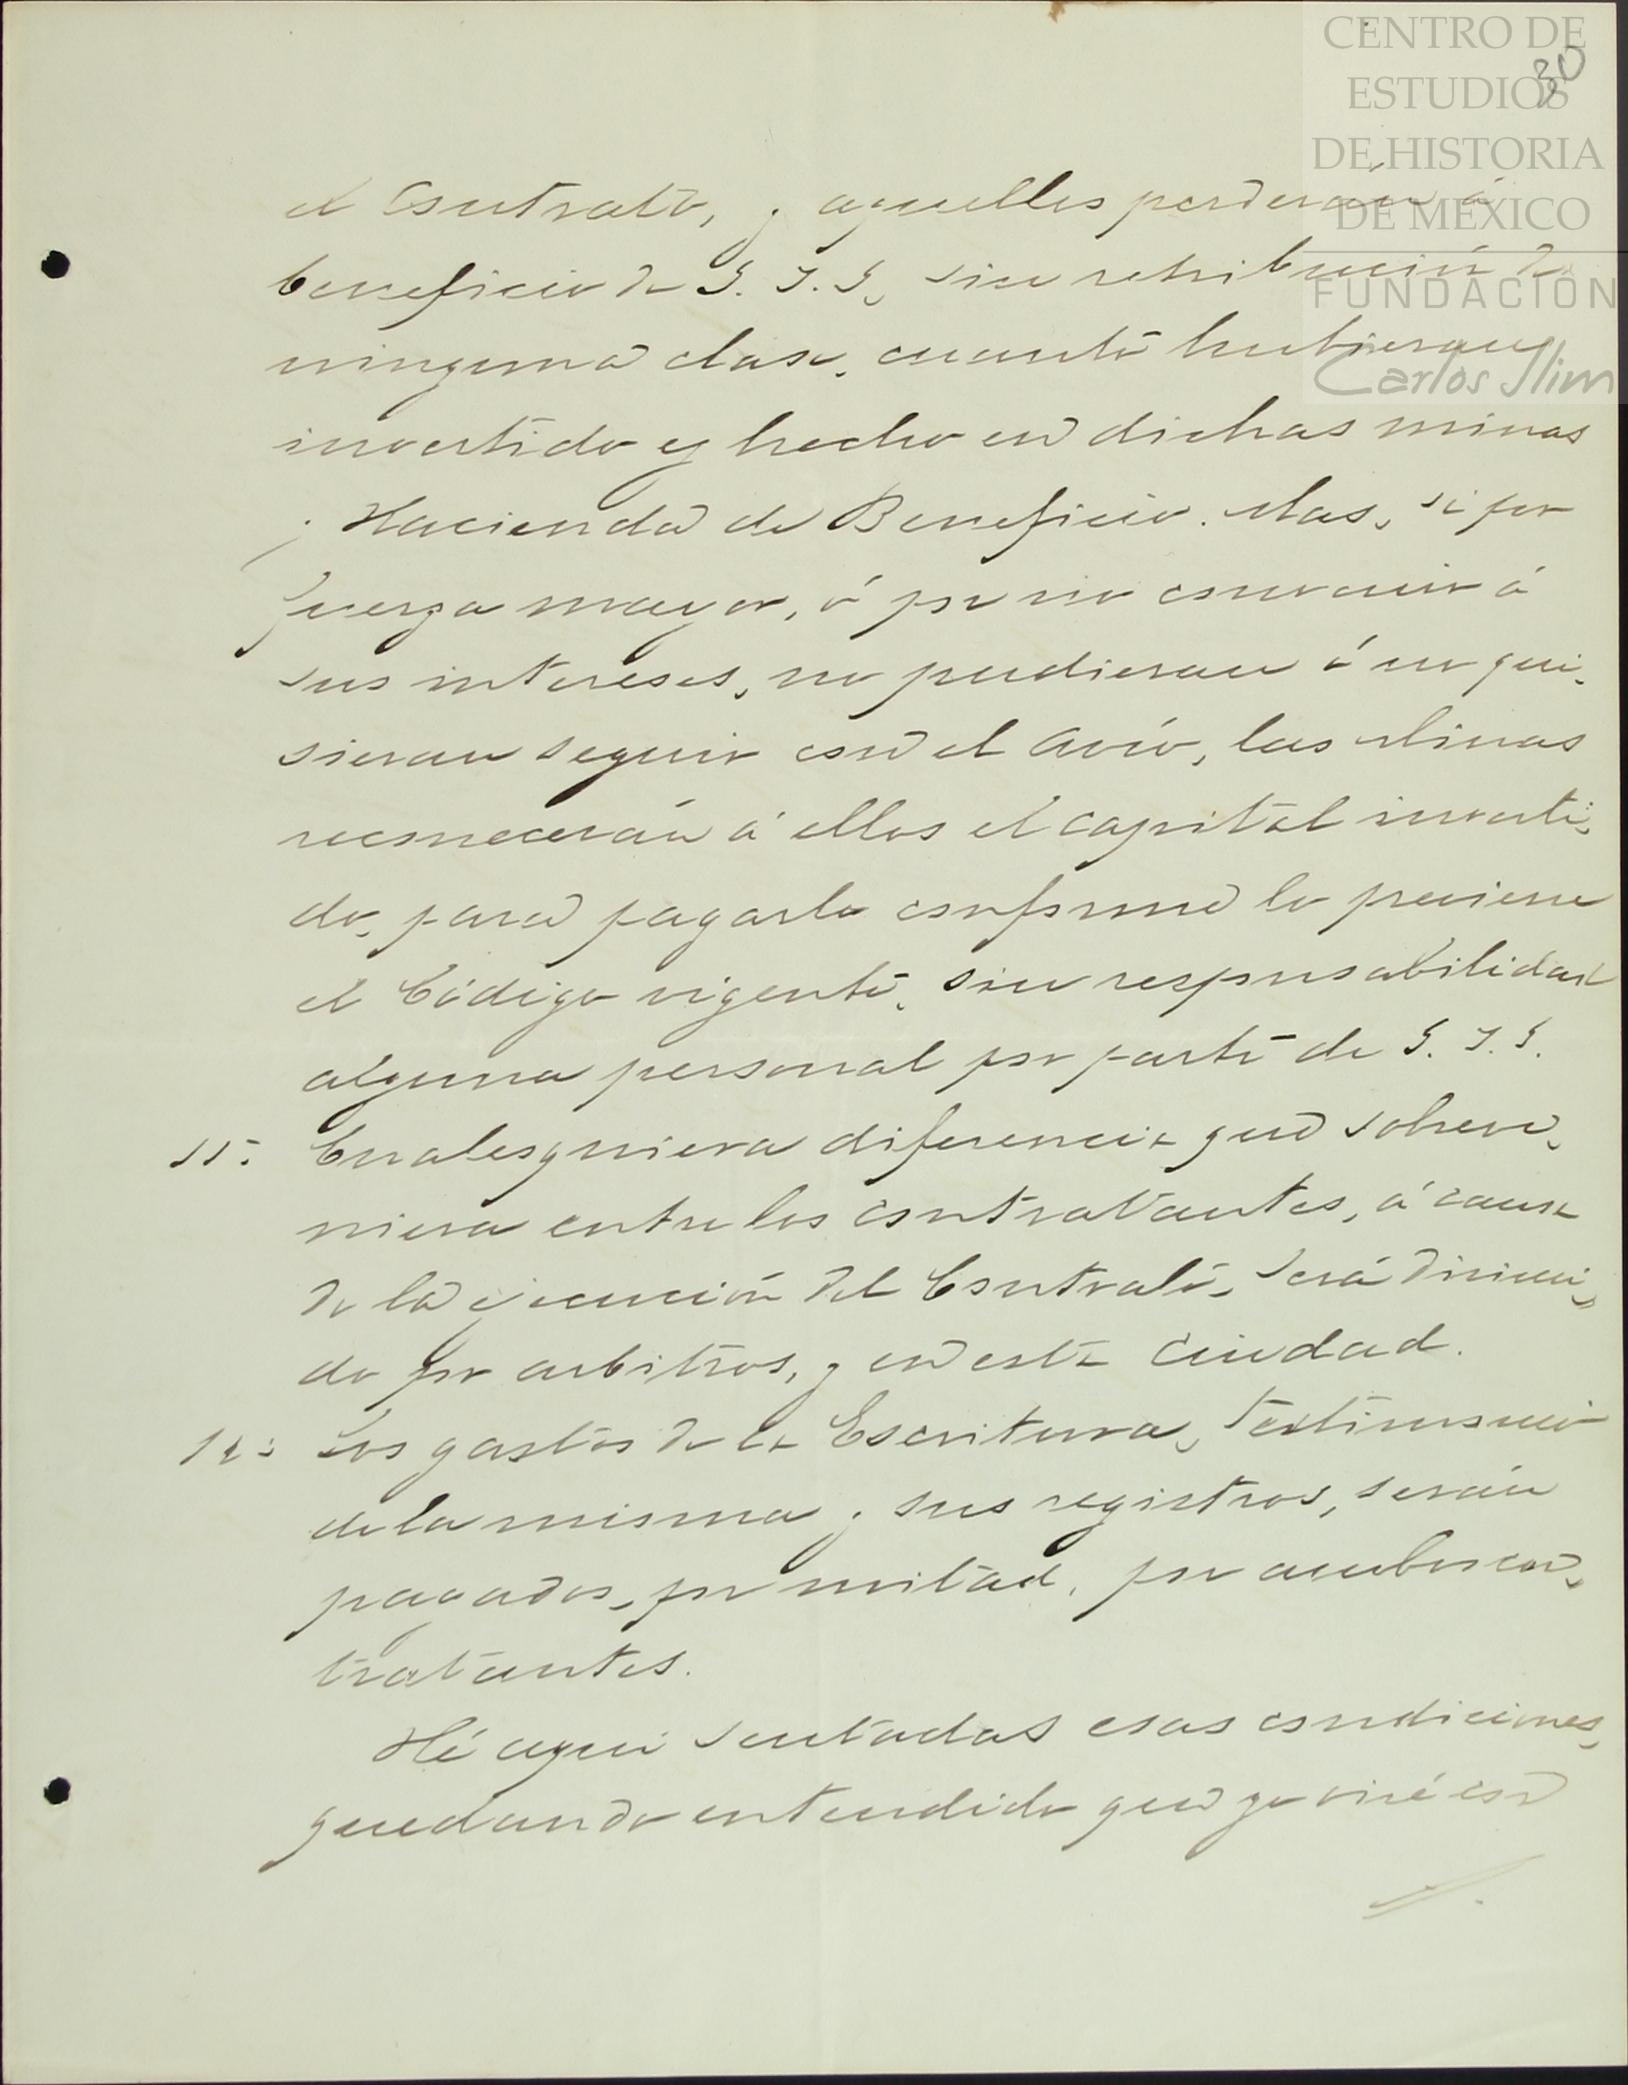 CENTRO DE
ESTUDIOS
DE HISTORIA
DE MÉXICO
FUNDACIÓN
Carlos Slim
30
el Contrato, y aquellos perderán á
beneficio de S. S. S., sin retribución de
ninguna clase, cuanto hubieran
invertido y hecho en dichas minas
y Hacienda de Beneficio. Mas, si por
fuerza mayor, ó por no convenir á
sus intereses, no pudieran ó no qui-
sieran seguir con el avío, las Minas
reconocerán á ellos el capital inverti-
do, para pagarlo conforme lo previene
el Código vigente, sin responsabilidad
alguna personal por parte de S. S. S.
11ª Cualesquiera diferencia que sobrevi-
niera entre los contratantes, á causa
de la ejecución del Contrato, será dirimi-
do por arbitros, y en esta Ciudad.
12ª Los gastos de la Escritura, testimonio
de la misma y sus registros, serán
pagados, por mitad, por ambos con-
tratantes.
Hé aqui sentadas esas condiciones,
quedando entendido que yo iré con